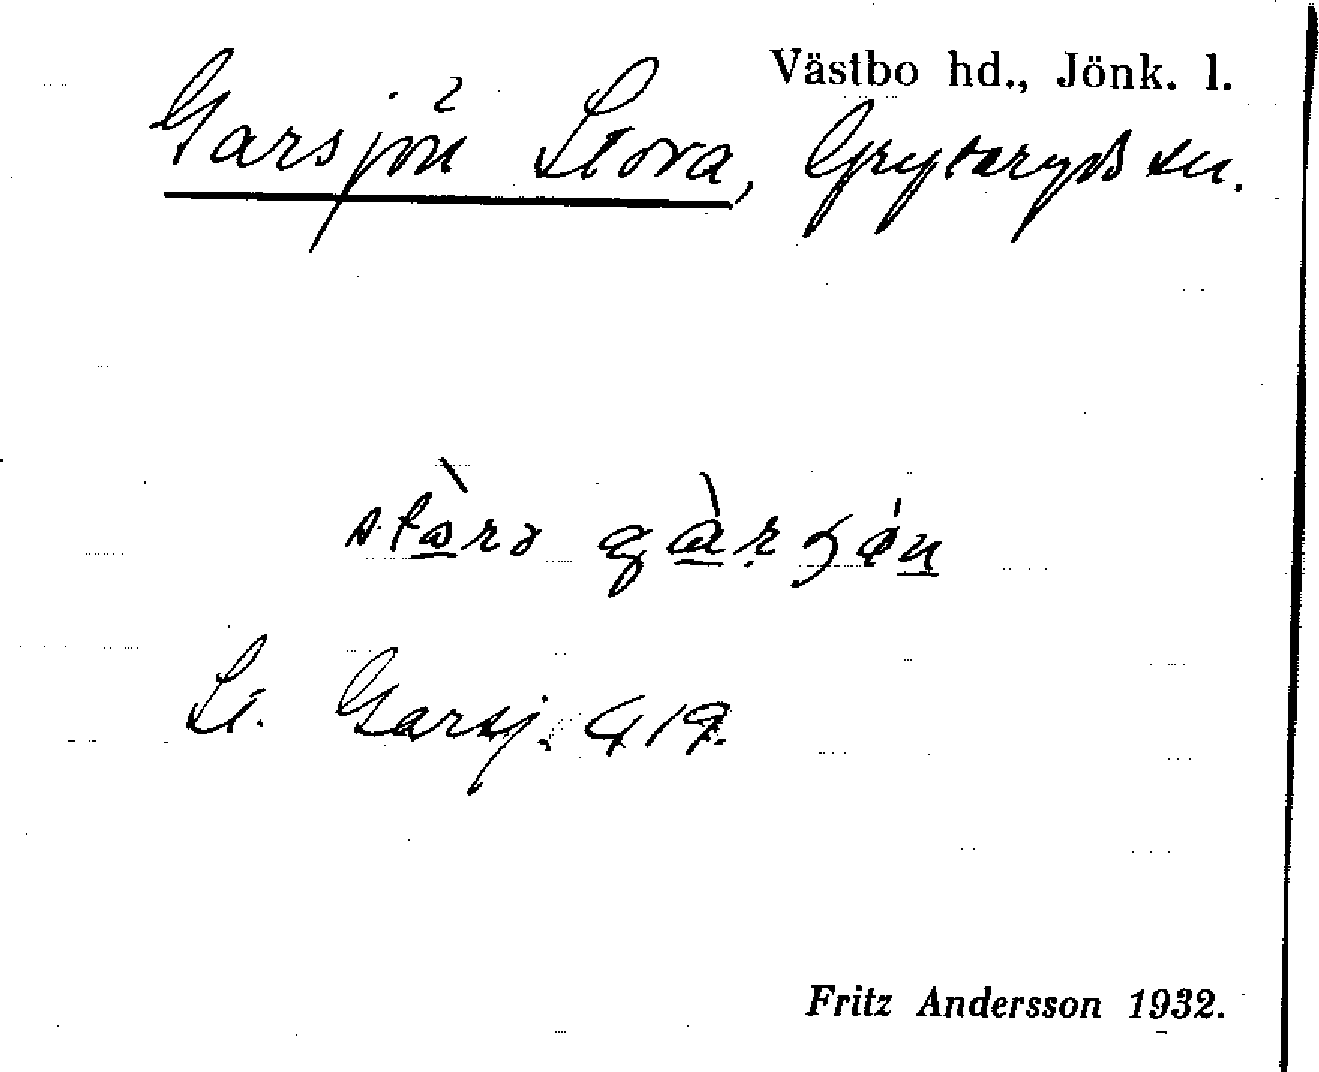 Västbo hd., Jönk. l.
Garsjön Stora, Gryteryds sn.
St. Garsj. G 19.
Fritz Andersson 1932.